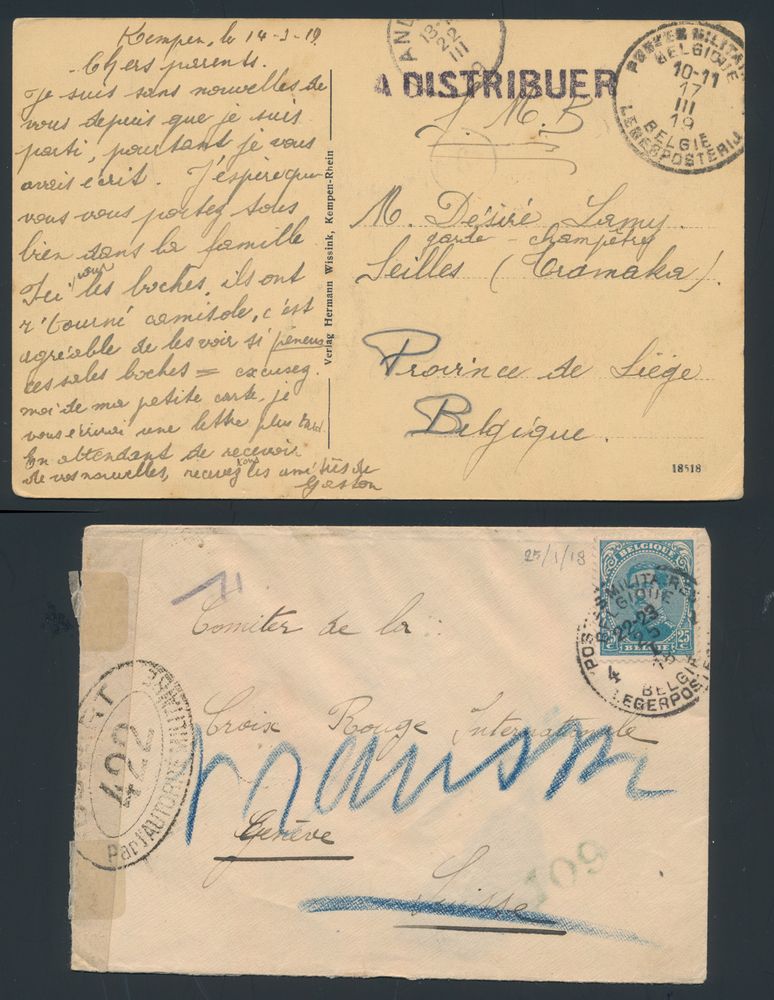 Kempen, le 14-3-19
Chers parents.
Je suis sans nouvelles de
vous depuis que je suis
parti, pourtant je vous
avais ecrit. J'espère que
vous vous portez tous
bien dans la famille
Ici les boches, ils ont
r'tourné camisole, c'est
agréable de les voir si peneus
ces sales boches = excusez
moi de ma petite carte, je
vous écrirai une lettre plus tard.
En attendant de recevoir
de vos nouvelles, recevez tous les amitiés de
Gaston
Verlag Hermann Wissink, Kempen-Rhein
A DISTRIBUER
S. M. B
POSTES MILITAI
BELGIQUE
10-11
17
III
19
BELGIE
LEGERPOSTERIJ
M. Désiré Lamy.
garde-champêtre
Seilles (Tramaka).
Province de Liège
Belgique.
18518
25/1/18
BELGIQUE
25 25
BELGIË
POSTES MILITAIRES
GIQUE
22-23
25
I
18
4
BELGIE
LEGERPOSTE
Comiter de la
Croix Rouge Internationale
Genève
Suisse
422
Par l'AUTORITÉ MILITAIRE
109